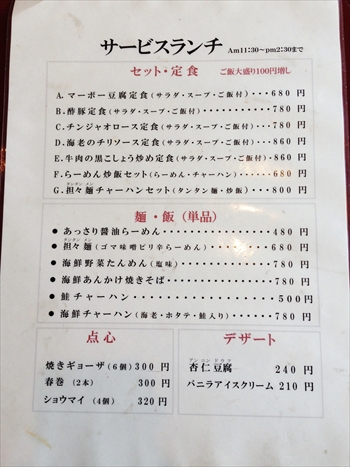 サービスランチ Am11:30〜pm2:30まで
セット・定食 ご飯大盛り100円増し
A. マーボー豆腐定食(サラダ・スープ・ご飯付)・・・680 円
B. 酢豚定食(サラダ・スープ・ご飯付)・・・・・・・・・780 円
C. チンジャオロース定食(サラダ・スープ・ご飯付)・780 円
D. 海老のチリソース定食(サラダ・スープ・ご飯付)・860 円
E. 牛肉の黒こしょう炒め定食(サラダ・スープ・ご飯付)・860 円
F. らーめん炒飯セット(らーめん・チャーハン)・・・・680 円
タンタン メン
G. 担々 麺チャーハンセット(タンタン麺・炒飯)・・・800 円
麺・飯 (単品)
● あっさり醤油らーめん・・・・・・・・・・・480 円
タンタン メン
● 担々 麺(ゴマ味噌ピリ辛らーめん)・・・・・・・680 円
● 海鮮野菜たんめん(塩味)・・・・・・・・・・780 円
● 海鮮あんかけ焼きそば・・・・・・・・・・・780 円
● 鮭チャーハン・・・・・・・・・・・・・・500円
● 海鮮チャーハン(海老・ホタテ・鮭入り)・・・・780 円
点心
焼きギョーザ(6個)300 円
春巻 (2本) 300 円
ショウマイ (4個) 320 円
デザート
杏仁豆腐 240 円
バニラアイスクリーム 210 円